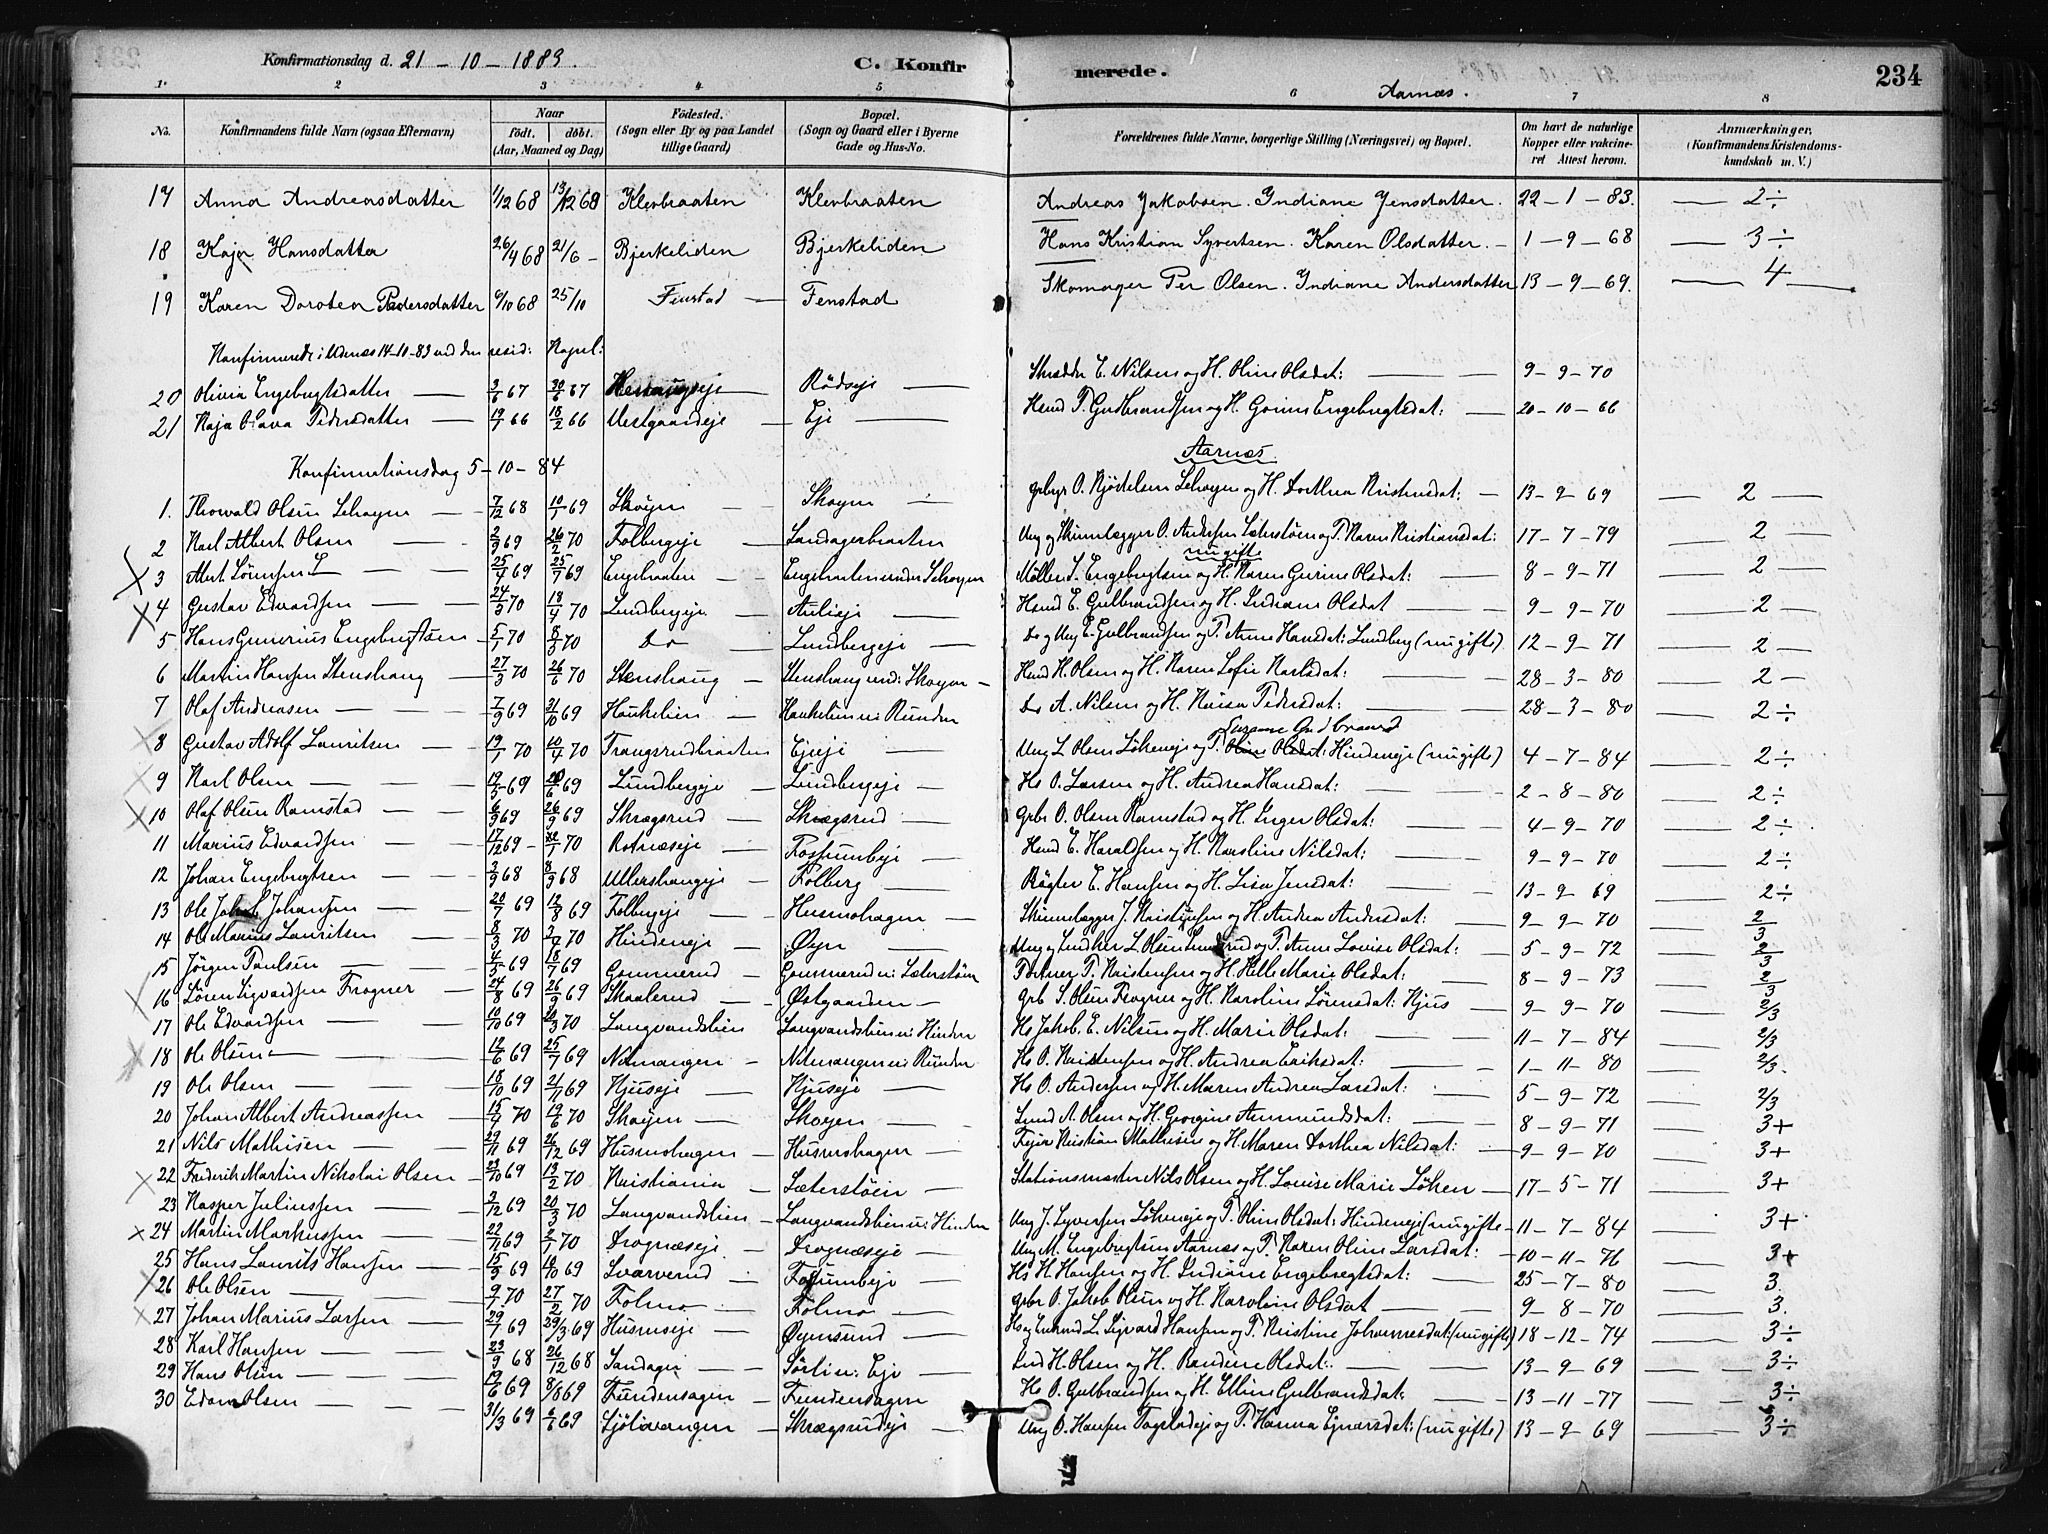 Konfirmationsdag d. 21 - 10 - 1883.
C. Konfirmerede.
234
Aarnæs.
1. 2 3 4 5 6 7 8
No. Konfirmandens fulde Navn (ogsaa Efternavn) Naar født. døbt. (Aar, Maaned og Dag) Fødested. (Sogn eller By og paa Landet tillige Gaard) Bopæl. (Sogn og Gaard eller i Byerne Gade og Hus-No. Forældrenes fulde Navne, borgerlige Stilling (Næringsvei) og Bopæl. Om havt de naturlige Kopper eller vakcineret Attest herom. Anmærkninger, (Konfirmandens Kristendomskundskab m. V.)
17 Anna Andreasdatter 1/12 68 13/12 68 Klevbraaten Klevbraaten Andreas Jakobsen. Indiane Jensdatter. 22 - 1 - 83. 2÷
18 Kaja Hansdatter 26/4 68 21/6 - Bjerkeliden Bjerkeliden Hans Kristian Syvertsen. Karen Olsdatter. - 1 - 9 - 68 3÷
19 Karen Dorotea Pedersdatter 6/10 68 25/10 Finstad Fenstad Skomager Per Olsen. Indiane Andersdatter 13 - 9 - 69. 4
Konfirmerede i Udenæs 14-10-83 ved den resid: Kapel:
20 Olivia Engebrigtsdatter 3/6 67 30/6 67 Rødseje Skrædder E. Nilsen og H. Oline Olsdat: 9 - 9 - 70
21 Kaja Olava Pedersdatter 19/1 66 18/2 66 Vestgaardeje Eje Husmd P. Gudbrandsen og H. Gorine Engebregtsdat: 20 - 10 - 66
Konfirmationsdag 5 - 10 - 84 Aarnæs.
1. Thorvald Olsen Schøyen 7/12 68 10/1 69 Skøyen Skøyen Grbgr O. Kjødelsen Schøyen og H. Dorthea Kristensdat: 13 - 9 - 69 2
2 Karl Albert Olsen 2/9 69 26/2 70 Folbergeje Sandagerbraaten Ung og Skinnelægger O. Andersen Sæterstøen og P. Karen Kristiansdat: 17 - 7 - 79 2
3 Albert Sørensen 25/4 69 25/7 69 Engebraaten Engebraaten under Schøyen Møller S. Engebregtsen og H. Karen Gurine Olsdat: 8 - 9 - 71 2
nu gifte
4 Gustav Edvardsen 24/3 70 18/4 70 Lundbergeje Aulieje Husmd E. Gulbrandsen og H. Indiane Olsdat 9 - 9 - 70 2
5 Hans Gunerius Engebregtsen 5/1 70 8/3 70 Do Lundbergeje Do og Ung E. Gulbrandsen og P. Anne Hansdat: Lundberg (nu gifte) 12 - 9 - 71 2
6 Martin Hansen Stenshaug 27/3 70 26/6 70 Stenshaug Stenshaug und: Skøyen Husmd H. Olsen og H. Karen Sofie Karlsdat: 28 - 3 - 80 2
7 Olaf Andreasen 7/9 69 31/10 69 Haukelien Haukelien u: Runden Do A. Nilsen og H. Kaisa Pedersdat: 28 - 3 - 80 2÷
Susanne Gudbrand
8 Gustav Adolf Lauritsen 19/1 70 10/4 70 Trangsrudbraaten Ejeje Ung L. Olsen Løkeneje og P. Oline Olsdat: Hindeneje (nu gifte) 4 - 7 - 84 2÷
9 Karl Olsen 19/5 69 20/6 69 Lundbergeje Lundbergeje Hs O. Larsen og H. Andrea Hansdat: 2 - 8 - 80 2÷
10 Olaf Olsen Ramstad 6/9 69 26/9 69 Skrægsrud Skrægsrud Grbr O. Olsen Ramstad og H. Inger Olsdat: 4 - 9 - 70 2÷
11 Marius Edvardsen 17/12 69 - 22/1 70 Rotnæseje Fossumbeje Husmd E. Haraldsen og H. Karoline Nilsdat: 9 - 9 - 70 2÷
12 Johan Engebregtsen 3/9 68 8/9 68 Ullershaugeje Folberg Røgter E. Hansen og H. Lisa Jensdat: 13 - 9 - 69 2÷
13 Ole Jakob Johansen 20/7 69 12/8 69 Folbergeje Husmohagen Skinnelægger J. Kristiansen og H. Andrea Andersdat: 9 - 9 - 70 2/3
14 Ole Marius Lauritsen 8/3 70 3/6 70 Hindeneje Øyen Ung og Snedker L. Olsen og P. Anne Lovise Olsdat: 5 - 9 - 72 2/3
15 Jørgen Paulsen 4/5 69 18/7 69 Gommerud Gommerud u: Sæterstøen Portner P. Kristensen og H. Helle Marie Olsdat: 8 - 9 - 73 2/3
16 Søren Sigvardsen Frogner 24/8 69 26/9 69 Skaalerud Østgaarden Grb S. Olsen Frogner og H. Karoline Sørensdat: Hjus 9 - 9 - 70 2/3
17 Ole Edvardsen 10/10 69 20/3 70 Langvandslien Langvandslien u: Hinden Hs Jakob E. Nilsen og H. Marie Olsdat: 11 - 7 - 84 2/3
18 Ole Olsen 12/6 69 25/7 69 Nitmangen Nitmangen u: Runden Hs O. Kristensen og H. Andrea Eriksdat: 1 - 11 - 80 2/3.
19 Ole Olsen 18/10 69 21/11 69 Hjuseje Hjuseje Hs O. Andersen og H. Maren Andrea Larsdat: 5 - 9 - 72 2/3
20 Johan Albert Andreassen 15/4 70 19/6 70 Skøyen Skøyen Smed A. Olsen og H. Georgine Ammundsdat: 8 - 9 - 71 3+
21 Nils Mathisen 29/11 69 26/12 69 Husmohagen Husmohagen Fejer Kristian Mathisen og H. Maren Dorthea Nilsdat: 9 - 9 - 70 3+
22 Frederik Martin Nikolai Olsen 23/10 69 13/2 70 Kristiania Sæterstøen Stationsmester Nils Olsen og H. Lovise Marie Løken 17 - 5 - 71 3+
23 Kasper Juliussen 2/12 69 20/3 70 Langvandslien Langvandslien u: Hinden Ung J. Syversen Løkeneje og P. Oline Olsdat: Hindeneje (nu gifte - 11 - 7 - 84 3+
24 Martin Markussen 22/11 69 2/1 70 Drognæseje Drognæseje Ung M. Engebregtsen Aarnæs og P. Karen Oline Larsdat: 10 - 11 - 76 3+
25 Hans Laurits Hansen 15/9 69 10/10 69 Svarverud Fossumbeje Hs H. Hansen og H. Indiane Engebregtsdat: 25 - 7 - 80 3.
26 Ole Olsen 9/1 70 27/2 70 Folmo Folmo Grbr O. Jakob Olsen og H. Karoline Olsdat 9 - 8 - 70 3.
27 Johan Marius Larsen 29/1 69 29/3 69 Husmseje Øyensund Hs og Enkmd L. Sigvard Hansen og P. Kristine Johannesdat: (nu gifte) 18 - 12 - 74 3÷
28 Karl Hansen 23/9 68 26/12 68 Sandager Sørli u: Eje Lnd H. Olsen og H. Randine Olsdat: 13 - 9 - 69 3÷
29 Hans Olsen 19/6 69 8/8 69 Fundensagen Fundensagen Hs O. Gulbrandsen og H. Elline Gulbrandsdat: 13 - 11 - 77 3÷
30 Edvard Olsen 31/3 69 6/6 69 Sjølivangen Skrægsrudeje Ung O. Hansen Fagstadeje og P. Hanna Ejnersdat: (nu gifte) 13 - 9 - 69 3÷